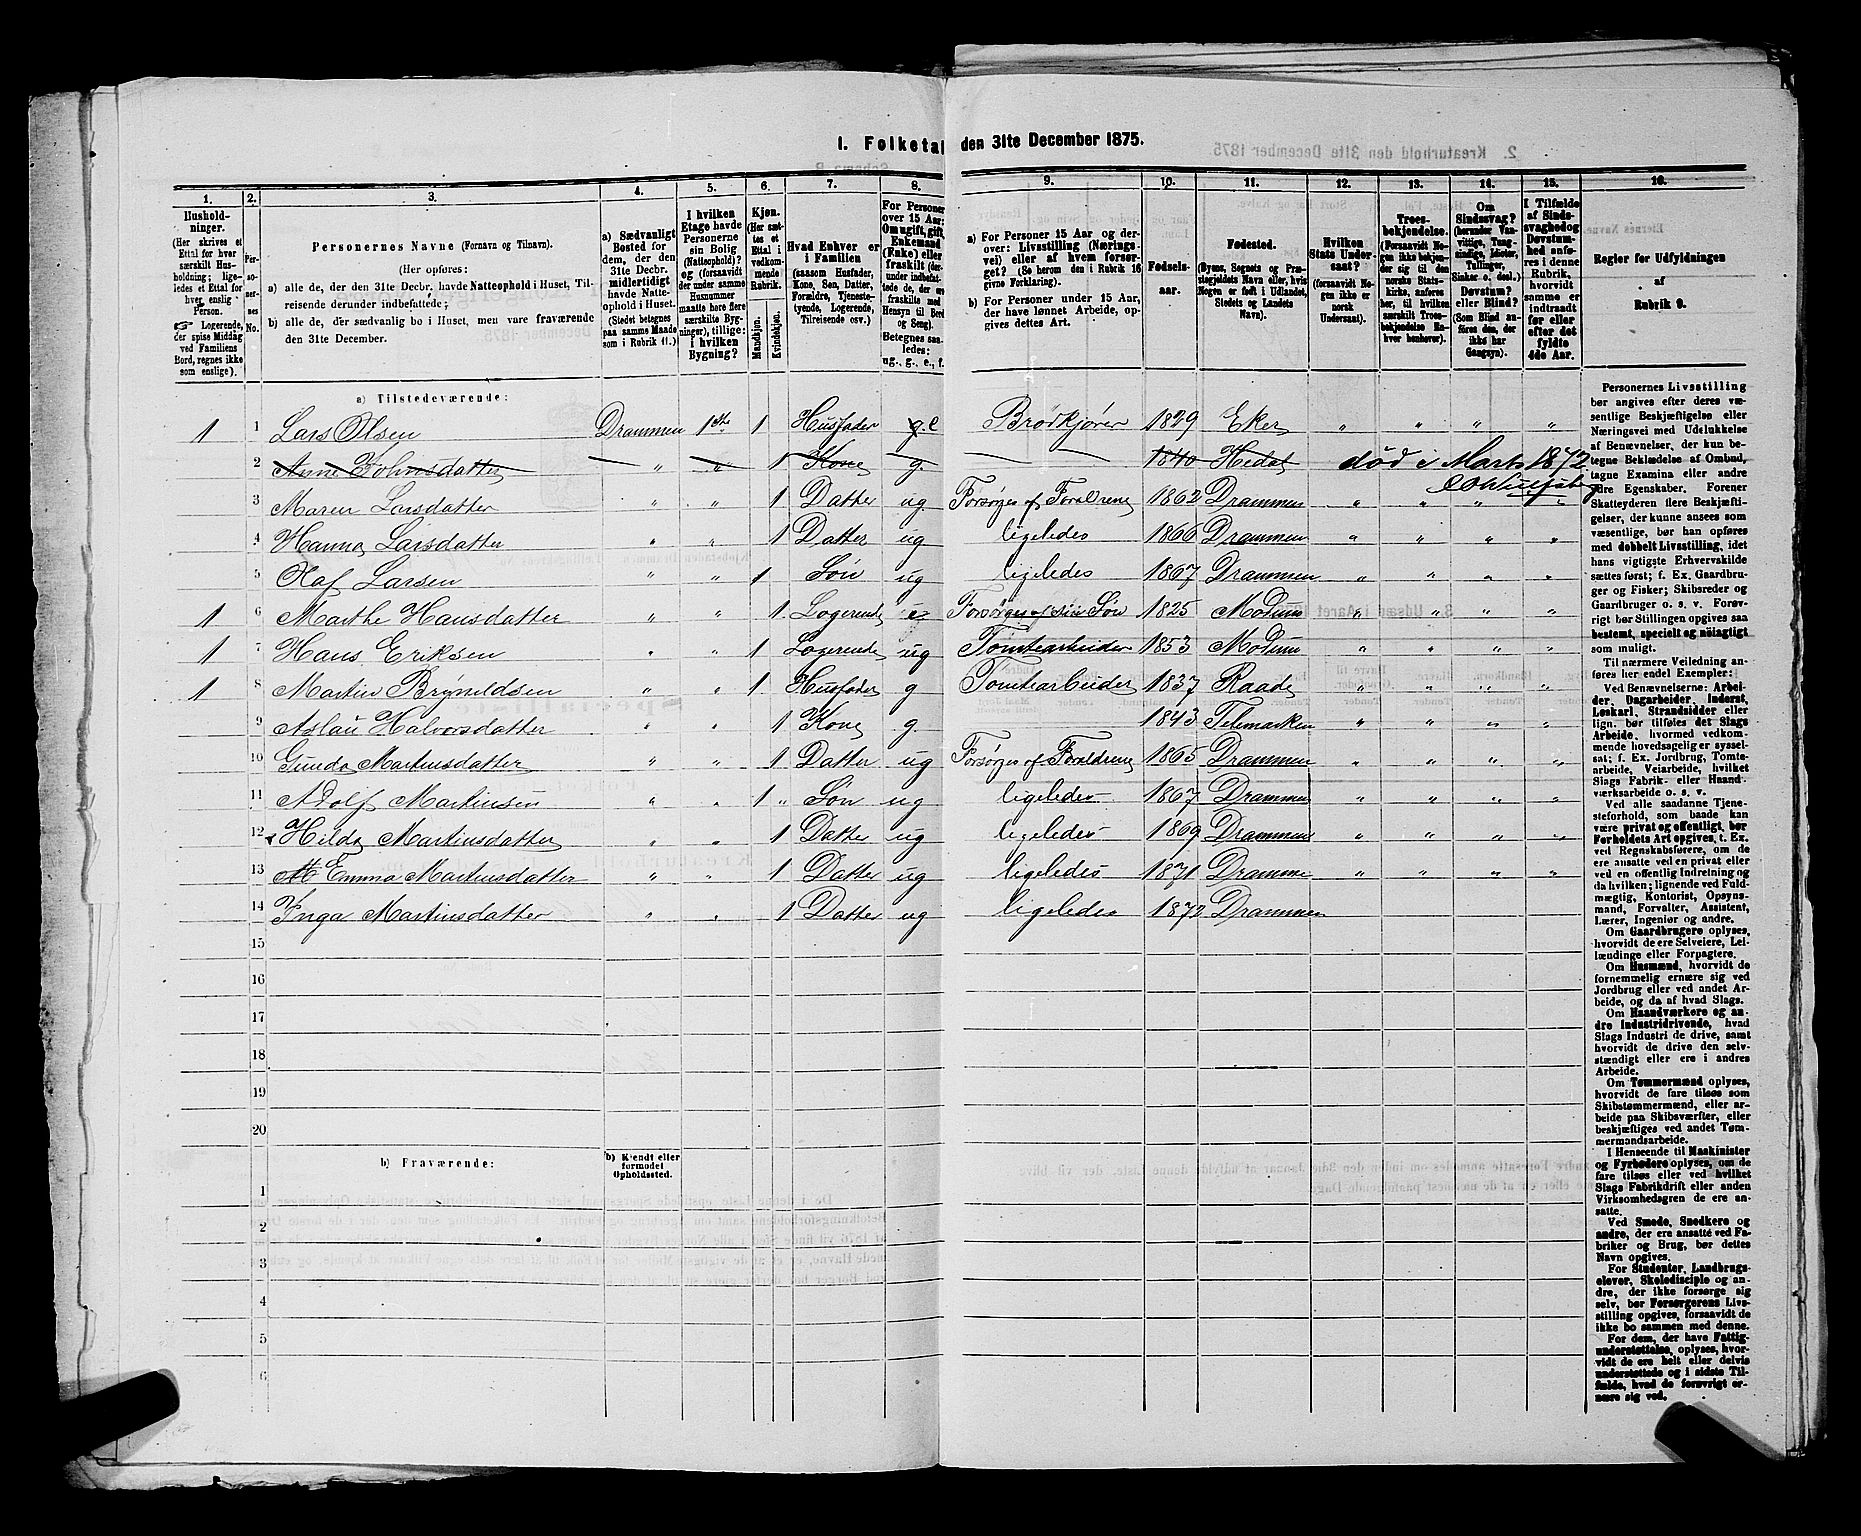 I. Folketal den 31te December 1875.
1. 2. 3. 4. 5. 6. 7. 8. 9. 10. 11. 12. 13. 14. 15. 16.
Husholdninger.
(Her skrives et Ettal for hver særskilt Husholdning; ligeledes et Ettal for hver enslig Person.
☞ Logerende, der spise Middag ved Familiens Bord, regnes ikke som enslige).
Personernes No.
Personernes Navne (Fornavn og Tilnavn).
(Her opføres:
a) alle de, der den 31te Decbr. havde Natteophold i Huset, Tilreisende derunder indbefattede;
b) alle de, der sædvanlig bo i Huset, men vare fraværende den 31te December.
a) Sædvanligt Bosted for dem, der den 31te Decbr. midlertidigt havde Natteophold i Huset. (Stedet betegnes paa samme Maade som i Rubrik 11.)
I hvilken Etage havde Personerne sin Bolig (Natteophold)? og (forsaavidt der under samme Husnummer maatte høre flere særskilte Bygninger), tillige: i hvilken Bygning?
Kjøn. (Her sættes et Ettal i vedkommende Rubrik.
Mandkjøn. Kvindekjøn.
Hvad Enhver er i Familien
(saasom Husfader, Kone, Søn, Datter, Forældre, Tjenestetyende, Logerende, Tilreisende osv.)
For Personer over 15 Aar: Om ugift, gift, Enkemand (Enke) eller fraskilt
Betegnes saaledes: ug., g., e., f.
a) For Personer 15 Aar og derover: Livsstilling (Næringsvei) eller af hvem forsørget? (Se herom den i Rubrik 16 givne Forklaring).
b) For Personer under 15 Aar, der have lønnet Arbeide, opgives dettes Art.
Fødselsaar.
Fødested.
(Byens, Sognets og Præstegjeldets Navn eller, hvis Nogen er født i Udlandet, Stedets og Landets Navn).
Hvilken Stats Undersaat?
(forsaavidt Nogen ikke er norsk Undersaat).
Troesbekjendelse.
(Forsaavidt Nogen ikke bekjender sig til den norske Statskirke, anføres her, til hvilken særskilt Troesbekjendelse Enhver henhører).
Om Sindssvag? (herunder Vanvittige, Tungsindige, Idioter, Tullinger, Sinker o. desl.)
Døvstum? eller Blind?
(Som Blind anføres den, der ikke har Gangsyn).
I Tilfælde af Sindssvaghed og Døvstumhed anføres i denne Rubrik, hvorvidt samme er indtraadt før eller efter det fyldte 4de Aar.
Regler for Udfyldningen
af
Rubrik 9.
a) Tilstedeværende:
1 1 Lars Olsen Drammen 1ste 1 Husfader g. e Brødkjører 1829 Eker " " " "
2 Anne Johnsdatter " " 1 Kone g 1840 Hedal død i Marts 1872
3 Maren Larsdatter " " 1 Datter ug Forsørges af Forældrene 1862 Drammen " " " "
4 Hanna Larsdatter " " 1 Datter ug ligeledes 1866 Drammen " " " "
5 Olaf Larsen " " 1 Søn ug ligeledes 1867 Drammen " " " "
1 6 Marthe Hansdatter " " 1 Logerende Forsørges af sin Søn 1825 Modum " " " "
1 7 Hans Eriksen " " 1 Logerende ug Tomtearbeider 1853 Modum " " " "
1 8 Martin Brynildsen " " 1 Husfader g Tomtearbeider 1837 Raade " " " "
9 Aslau Halvorsdatter " " 1 Kone g. 1843 Telemarken " " " "
10 Gunda Martinsdatter " " 1 Datter ug Forsørges af Forældrene 1865 Drammen " " " "
11 Adolf Martinsen " " 1 " Søn ug ligeledes 1867 Drammen " " " "
12 Hilda Martinsdatter " " 1 Datter ug ligeledes 1869 Drammen " " " "
13 Emma Martinsdatter " " 1 Datter ug ligeledes 1871 Dramme " " " "
14 Inga Martinsdatter " " 1 Datter ug ligeledes 1872 Drammen
15
16
17
18
19
20
b) Fraværende:
b) Kjendt eller formodet Opholdssted.
1
2
3
4
5
6
Personernes Livsstilling
bør angives efter deres væsentlige Beskjæftigelse eller
Næringsvei med Udelukkelse
af Benævnelser, der kun betegne Beklædelse af Ombud,
tagne Examina eller andre
ydre Egenskaber. Forener
Skatteyderen flere Beskjæftigelser, der kunne ansees som
væsentlige, bør han opføres
med dobbelt Livsstilling, idet
hans vigtigste Erhvervskilde
sættes først; f. Ex. Gaardbruger og Fisker; Skibsreder og
Gaardbruger o. s. v. Forøvrigt bør Stillingen opgives saa
bestemt, specielt og nöiagtigt
som muligt.
Til nærmere Veiledning anføres her endel Exempler:
Ved Benævnelserne: Arbeider, Dagarbeider, Inderst,
Løskarl, Strandsidder eller
lign. bør tilføies det Slags
Arbeide, hvormed vedkommende hovedsagelig er sysselsat; f. Ex. Jordbrug, Tomtearbeide, Veiarbeide, hvilket
Slags Fabrik- eller Haandværksarbeide o. s. v.
Ved alle saadanne Tjenesteforhold, som baade kan
være privat og offentligt, bør
Forholdets Art opgives, t. Ex.
ved Regnskabsførere, om de
ere ansatte ved en privat eller
ved en offentlig Indretning og
da hvilken; lignende ved Fuldmægtig, Kontorist, Opsynsmand, Forvalter, Assistent,
Lærer, Ingeniør og andre.
Om Gaardbrugere oplyses,
hvorvidt de ere Selveiere, Leilændinge eller Forpagtere.
Om Husmænd, hvorvidt de
fornemmelig ernære sig ved
Jordbrug eller ved andet Arbeide, og da af hvad Slags.
Om Haandværkere og andre Industridrivende, hvad
Slags Industri de drive, samt
hvorvidt de drive den selvstændigt eller ere i andres
Arbeide.
Om Tømmermænd oplyses,
hvorvidt de fare tilsøs som
Skibstømmermænd, eller arbeide paa Skibsværfter, eller
beskjæftiges ved andet Tømmermandsarbeide.
I Henseende til Maskinister
og Fyrbødere oplyses, om de
fare tilsøs eller ved hvilket
Slags Fabrikdrift eller anden
Virksomhedsgren de ere ansatte.
Ved Smede, Snedkere og
andre, der ere ansatte ved Fabriker og Brug, bør dettes
Navn opgives.
For Studenter, Landbrugselever, Skoledisciple og andre, der ikke forsørge sig
selv, bør Forsørgerens Livsstilling opgives, forsaavidt de
ikke bo sammen med denne.
For dem, der have Fattigunderstøttelse, oplyses, hvorvidt de ere helt eller delvis
understøttede og i sidste Tilfælde, hvad de forøvrigt ernære sig ved.